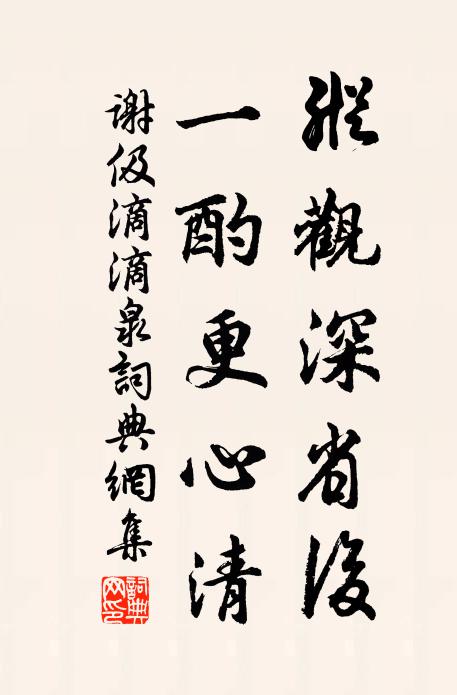 縱觀深省後
一酌更心清
謝伋滴滴泉詞典網集
詞典網印